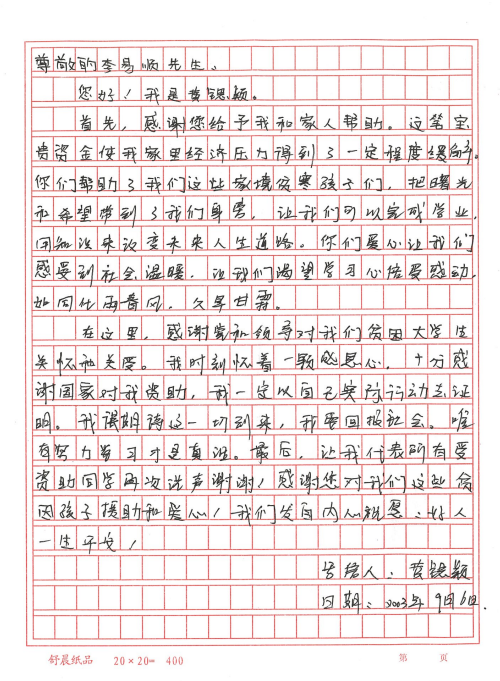 尊敬的李易顺先生：
您好！我是黄锶颖。
首先，感谢您给予我和家人帮助。这笔宝
贵资金使我家里经济压力得到了一定程度缓解。
你们帮助了我们这些家境贫寒孩子们，把曙光
和希望带到了我们身旁，让我们可以完成学业，
用知识来改变未来人生道路。你们爱心让我们
感受到社会温暖，让我们渴望学习心倍受感动，
如同化雨春风，久旱甘霖。
在这里，感谢党和领导对我们贫困大学生
关怀和关爱。我时刻怀着一颗感恩心，十分感
谢国家对我资助，我一定以自己实际行动去证
明。我很期待这一切到来，我要回报社会。唯
有努力学习才是真谛。最后，让我代表所有受
资助同学再次说声谢谢！感谢您对我们这些贫
困孩子援助和爱心！我们发自内心祝愿：好人
一生平安！
写信人：黄锶颖
日期：2023年9月6日.
舒晨纸品 20×20=400 第 页